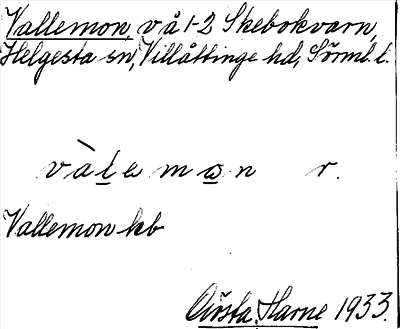 Vallemon, vå 1-2 Skebokvarn,
Helgesta sn, Villåttinge hd, Sörml. l.
vàlemon r.
Vallemon kb
Harne 1933.